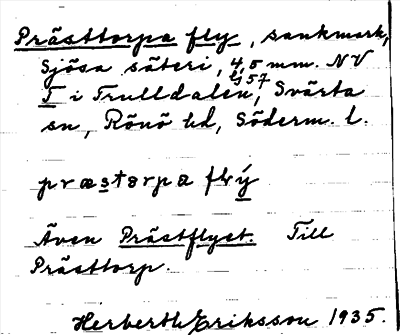 Prästtorpa fly, sankmark,
Sjösa säteri, 4,5 mm. NV
T i Trulldalen, Svärta
bl 57
sn, Rönö hd, Söderm. l.
præstorpa flẏ
Även Prästflyet. Till
Prästtorp.
Herberth Eriksson 1935.